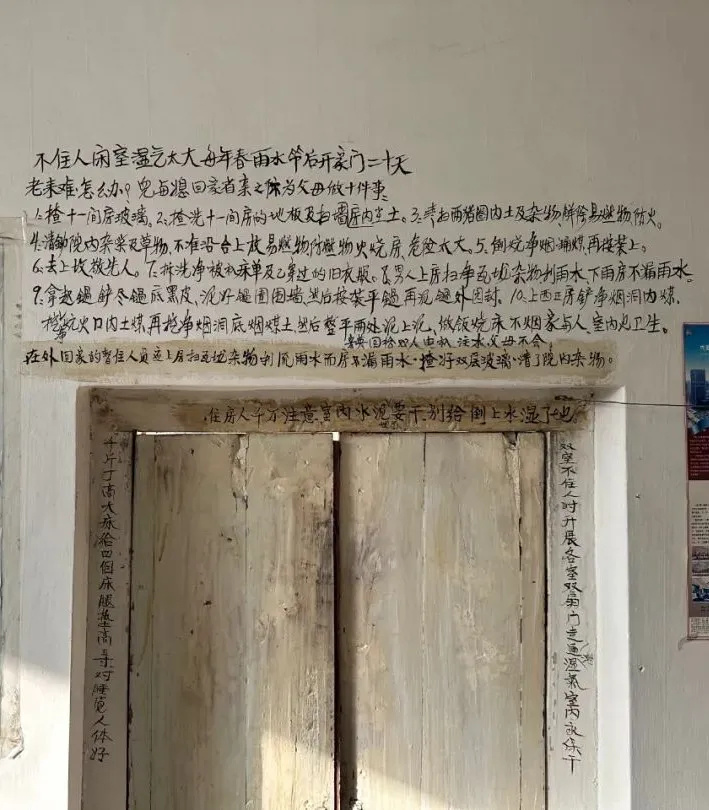 不住人闲室湿气太大每年春雨水节后开家门二十天
老来难怎么办？儿与媳回家省亲之际为父母做十件事
1.擦十一间房玻璃。2.擦洗十一间房的地板及扫墙房内尘土。3.清扫两猪圈内土及杂物,解除易燃物防火。
4.清除院内杂柴及草物,不准沿台上放易燃物防燃物火烧房,危险太大。5.倒烧净烟洞煤再按装上。
6.去上坟敬先人。7.拆洗净被祝床单及已穿过的旧衣服。8.男人上房扫净瓦地杂物利雨水、下雨房不漏雨水。
9.拿起锅铲尽锅底黑皮,泥好锅圈围墙,然后按装平锅再泥锅外围封。10.上西正房铲净烟洞内煤.
挖净炕火口内土煤,再挖净烟洞底烟煤土然后整平两处泥上泥,做饭烧床不烟家与人,室内也卫生。
父母不会
在外回家的暂住人员应上房扫瓦地杂物利流雨水而房不漏雨水·擦好双层玻璃·清了院内杂物。
住房人千万注意室内水泥要干,别给倒上水湿了地。
千斤丁高大床给四個床腿垫高三寸对睡觉人体好
双室不住人时开展各室双扇门走通湿氣室内永保干